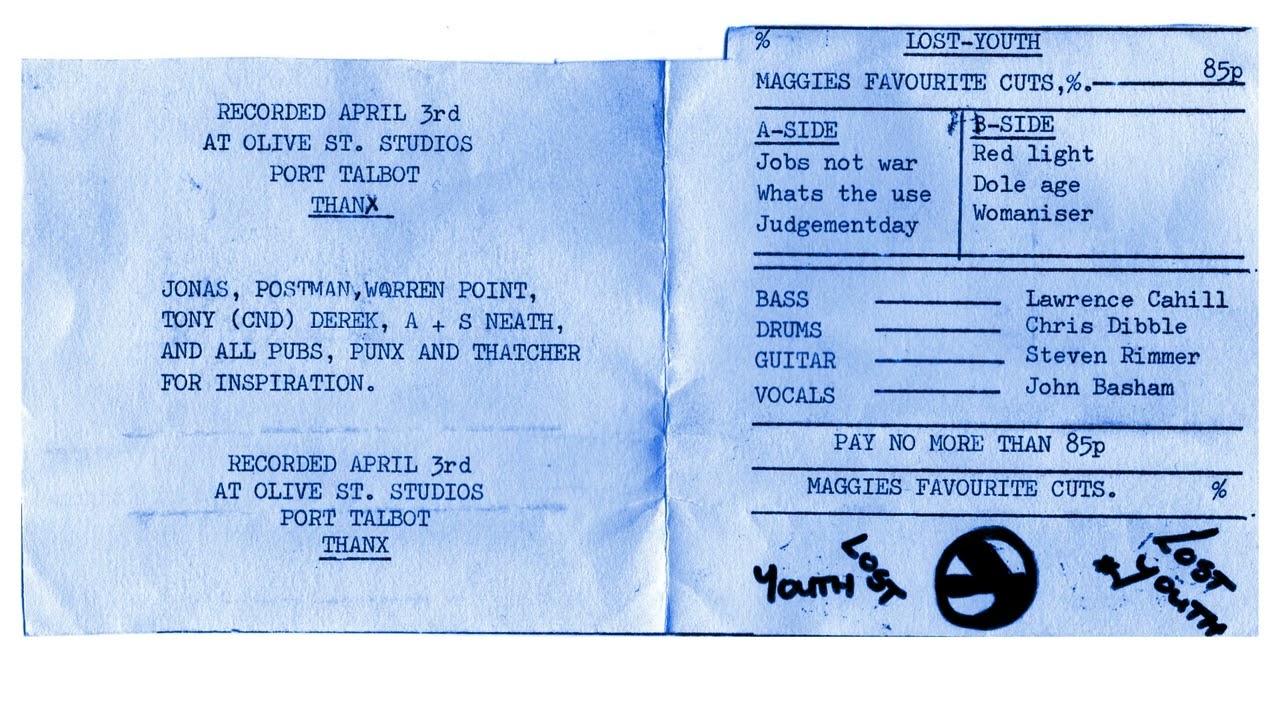 RECORDED APRIL 3rd
AT OLIVE ST. STUDIOS
PORT TALBOT
THANX
JONAS, POSTMAN,WARREN POINT,
TONY (CND) DEREK, A + S NEATH,
AND ALL PUBS, PUNX AND THATCHER
FOR INSPIRATION.
RECORDED APRIL 3rd
AT OLIVE ST. STUDIOS
PORT TALBOT
THANX
% LOST-YOUTH
MAGGIES FAVOURITE CUTS,%. 85p
A-SIDE
Jobs not war
Whats the use
Judgementday
B-SIDE
Red light
Dole age
Womaniser
BASS Lawrence Cahill
DRUMS Chris Dibble
GUITAR Steven Rimmer
VOCALS John Basham
PAY NO MORE THAN 85p
MAGGIES FAVOURITE CUTS. %
LOST
YOUTH
LOST
YOUTH